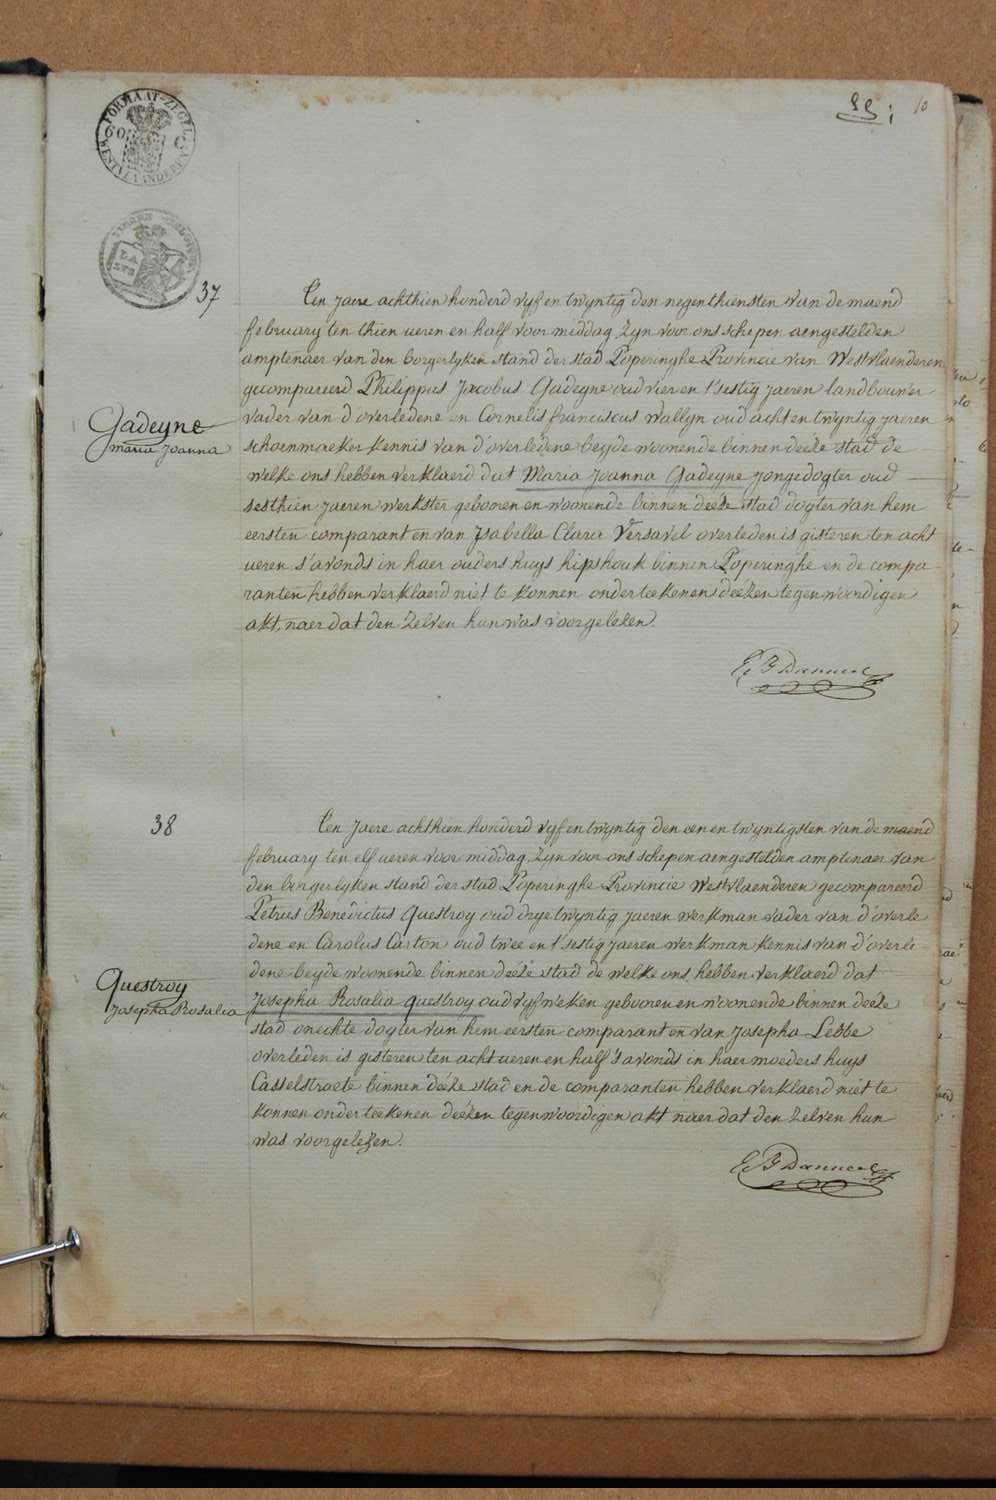 10
FORMAAT-ZEGEL
WESTVLAANDEREN
37
Gadeyne
maria Joanna
Een Jaere achthien honderd vyf en twyntig den negenthiensten van de maend
february ten thien ueren en half voor middag, Zyn voor ons schepen aengestelden
amptenaer van den borgerlyken stand der stad Poperinghe Provincie van Westvlaenderen
gecompareerd Philippus Jacobus Gadeyne oud vier en t'sestig jaeren landbouwer
vader van d'overledene en Cornelis franciscus Wallyn oud acht en twyntig jaeren
schoenmaeker kennis van d'overledene beyde woonende binnen deéze stad de
welke ons hebben verklaerd dat Maria Joanna Gadeyne Jongedogter oud
sesthien jaeren werkster geboren en woonende binnen deéze stad dogter van hem
eersten comparant en van Isabella Clara Versavel overleden is gisteren ten acht
ueren s'avonds in haer ouders huys hipshouk binnen Poperinghe en de compa-
ranten hebben verklaerd niet te konnen onderteekenen deézen tegenwoordigen
akt, naer dat den Zelven hun was voorgelezen.
38
Questroy
Josepha Rosalia
Een Jaere achthien honderd vyf en twyntig den een en twyntigsten van de maend
february ten elf ueren voor middag, Zyn voor ons schepen aengestelden amptenaer van
den borgerlyken stand der stad Poperinghe Provincie Westvlaenderen gecompareerd
Petrus Benedictus Questroy oud drye twyntig jaeren werkman vader van d'overle
dene en Carolus Carton oud twee en t'sestig jaeren werkman kennis van d'overle-
dene beyde woonende binnen deéze stad de welke ons hebben verklaerd dat
Josepha Rosalia Questroy oud vyf weken geboren en woonende binnen deéze
stad onechte dogter van hem eersten comparant en van Josepha Lebbe
overleden is gisteren ten acht ueren en half s'avonds in haer moeders huys
Casselstraete binnen déeze stad en de comparanten hebben verklaerd niet te
konnen onderteekenen deézen tegenwoordigen akt naer dat den Zelven hun
was voorgelezen.